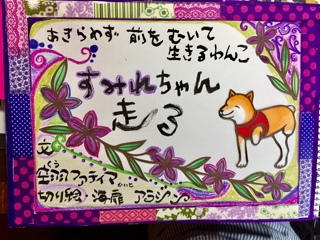 あきらめず 前をむいて
生きるわんこ
すみれちゃん
走る
文
くう
空羽ファティマ
かいと
切り絵・海扉 アラジン